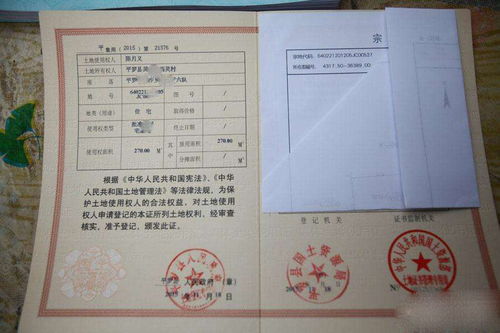 平 集用（2015）第 21376 号
土地使用权人 陈月义
土地所有权人 平罗县 村
座 落 平罗县 六队
地 号 640221 05 图 号 /
地类（用途） 住 宅 取得价格 /
使用权类型 批准 终止日期 /
使用权面积 270.00 M² 其中 独用面积 270.00 M²
分摊面积 / M²
根据《中华人民共和国宪法》、《中
华人民共和国土地管理法》等法律法规，为保
护土地使用权人的合法权益，对土地使用
权人申请登记的本证所列土地权利，经审查
核实，准予登记，颁发此证。
平罗县 人民政府（章）
2015 年 11 月 18 日
宗
宗地代码：640221201205JC00537
所在图幅号：4317.50-36389.00
登记机关
证书监制机关
平罗县国土资源局
中华人民共和国国土资源部
土地证书管理专用章